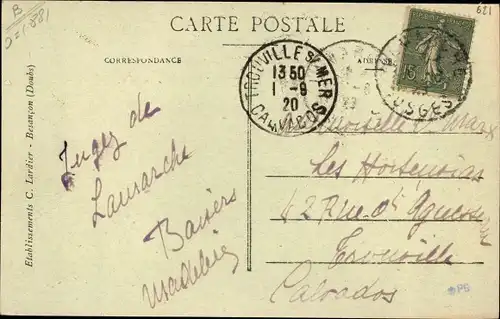 B
0=(88)
621
CARTE POSTALE
CORRESPONDANCE
ADRESSE
TROUVILLE S/ MER
13 50
1 - 9
20
CALVADOS
15
VOSGES
Jugez de
Lamarche
Baisers
Madeleine
Les Hortensias
42 Rue d'Aguesseau
Trouville
Calvados
Etablissements C. Lardier - Besançon (Doubs)
PB